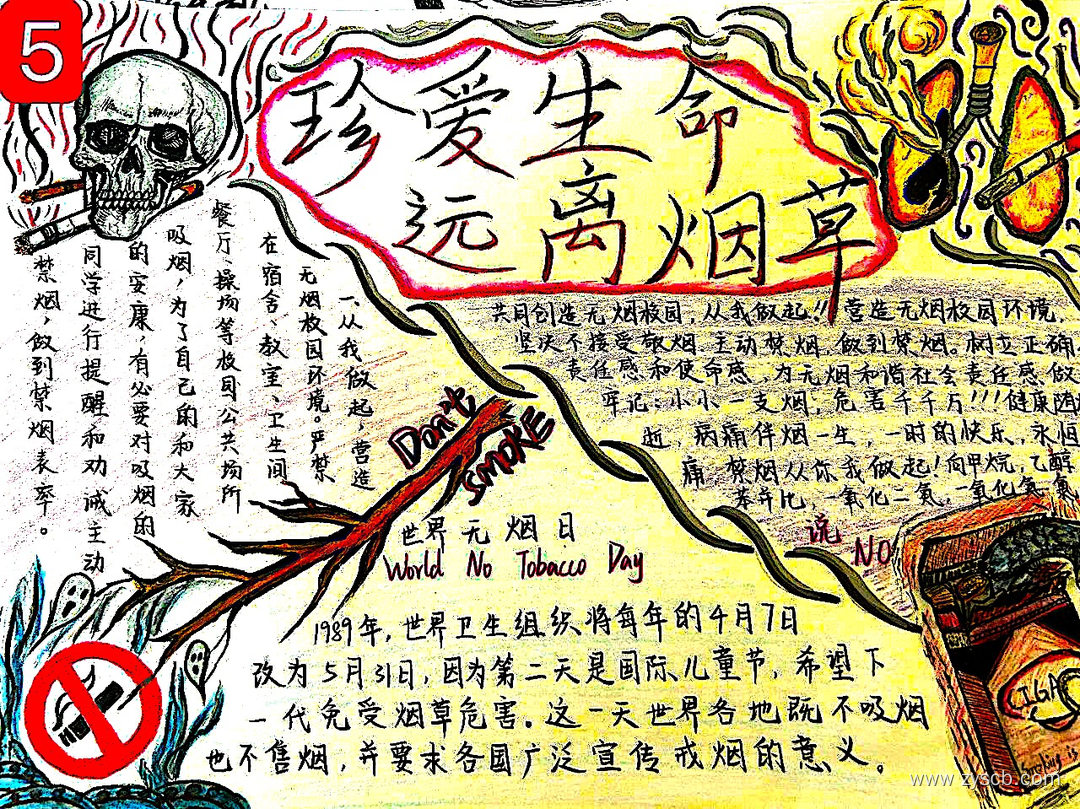 5
珍爱生命
远离烟草
一、从我做起，营造
无烟校园环境。严禁
在宿舍、教室、卫生间
餐厅、操场等校园公共场所
吸烟，为了自己的和大家
的安康，有必要对吸烟的
同学进行提醒和劝诫主动
禁烟，做到禁烟表率。
共同创造无烟校园，从我做起！！营造无烟校园环境.
坚决不接受敬烟 主动禁烟，做到禁烟。树立正确
责任感和使命感，为无烟和谐社会责任感、做
牢记：小小一支烟，危害千千万！！！健康随
逝，病痛伴烟一生，一时的快乐、永恒
痛 禁烟从你我做起！向甲烷，乙醇
一氧化二氮，一氧化氮
说 NO
Don't
SMOKE
世界无烟日
World No Tobacco Day
1989年，世界卫生组织将每年的4月7日
改为5月31日，因为第二天是国际儿童节，希望下
一代免受烟草危害。这一天世界各地既不吸烟
也不售烟，并要求各国广泛宣传戒烟的意义。
CIGA
www.zyscb.com